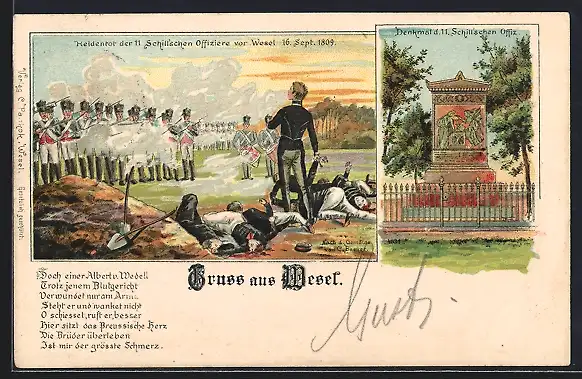 Heldentot der 11 Schill'schen Offiziere vor Wesel 16. Sept. 1809.
Denkmal d. 11. Schill'schen Offiz.
Verlag
Wesel.
Gesetzlich geschützt.
Nach d. Gemälde
Gruss aus Wesel.
Doch einer Albert v. Wedell
Trotz jenem Blutgericht
Verwundet nur am Arme
Steht er und wanket nicht
O schiesset, ruft er, besser
Hier sitzt das Preussische Herz
Die Brüder überleben
Ist mir der grösste Schmerz.